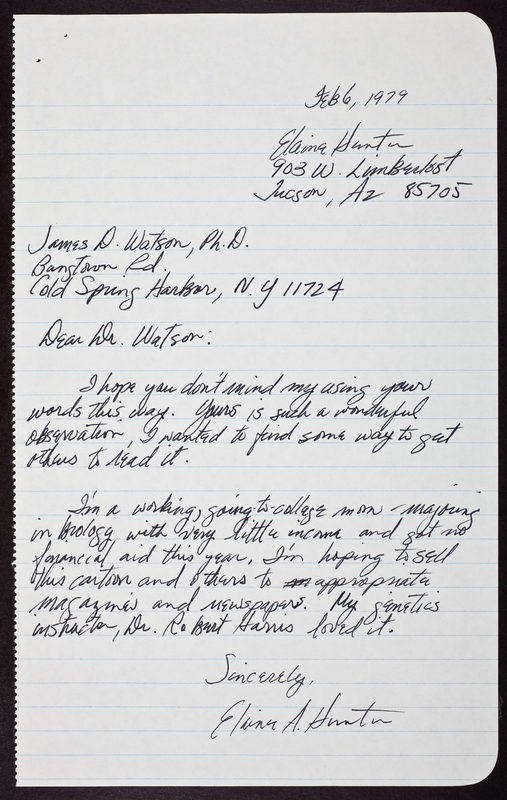 Feb 6, 1979
Elaine Hunter
903 W. Limberlost
Tucson, Az 85705
James D. Watson, Ph.D.
Bungtown Rd.
Cold Spring Harbor, N.Y 11724
Dear Dr. Watson:
I hope you don't mind my using your
words this way. Yours is such a wonderful
observation, I wanted to find some way to get
others to read it.
I'm a working, going-to-college mom - majoring
in biology with very little income and got no
financial aid this year. I'm hoping to sell
this cartoon and others to appropriate
magazines and newspapers. My genetics
instructor, Dr. Robert Harris loved it.
Sincerely,
Elaine A. Hunter